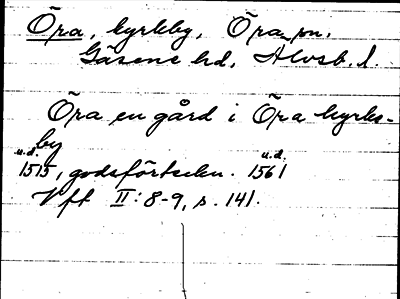 Öra, kyrkby, Öra sn,
Gäsene hd, Älvsb. l.
Öra en gård i Öra kyrko-
by
u.d. u.d.
1515, godsförteckn. 1561
Vft II: 8-9, s. 141.